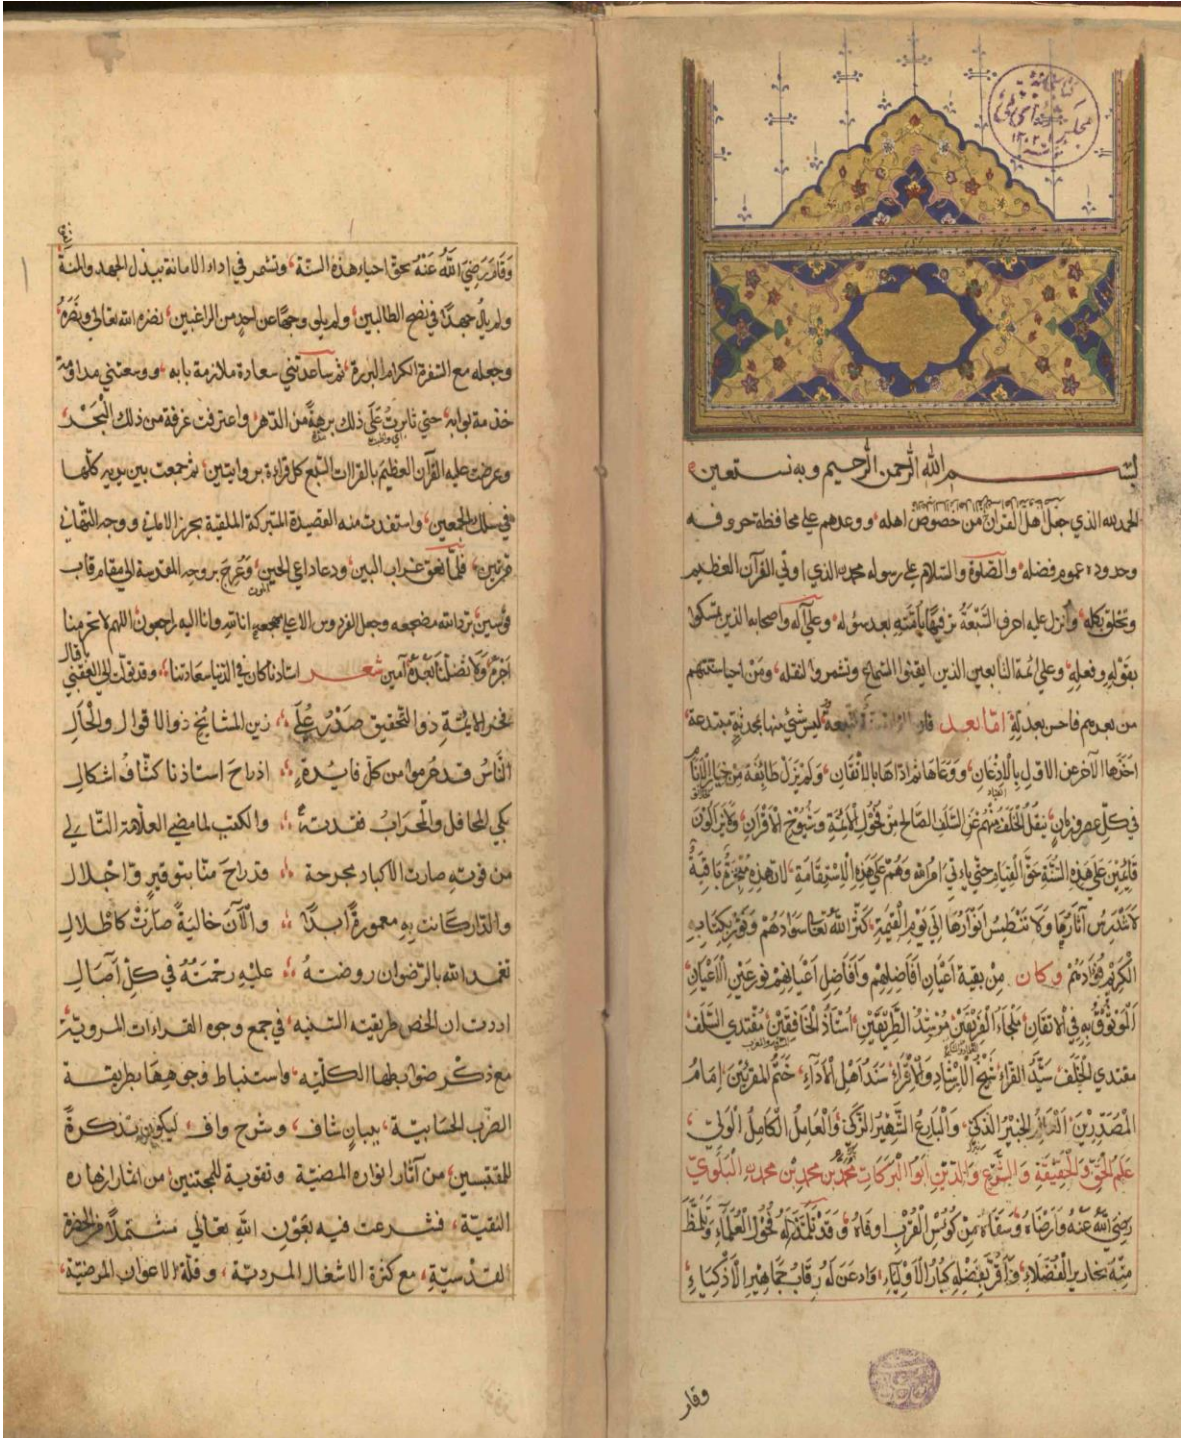 بسم الله الرحمن الرحيم وبه نستعين
الحمد لله الذي جعل اهل القرآن من خصوص اهله، ووعدهم على محافظة حروفه
وحدوده عموم فضله، والصلوة والسلام على رسوله محمد الذي اوتي القرآن العظيم
وتخلق بكله، وأنزل عليه احرف السبعة ترفيها بأمته بعد سؤله، وعلى آله واصحابه الذين تمسكوا
بقوله وفعله، وعلى ائمة التابعين الذين ايقنوا السماع وتشمروا لنقله، ومن احيا سنتهم
من بعدهم فاحسن بعدله اما بعد فان السبعة ليس شئ منها بمحدثة مبتدعة،
اخذها الآخر عن الاول بالاذعان، ووعاها ثم اداها بالاتقان، ولم يزل طائفة من خيار الانام
في كل عصر وزمان، ينقل الخلف منهم عن السلف الصالح من فحول الائمة وشيوخ الاقران، ولا يزالون
قائمين على هذه السنة حق القيام حتى يأتي امر الله وهم على هذه الاستقامة، لان هذه معجزة باقية
لا تندرس آثارها ولا تنطمس انوارها الى يوم القيمة، كثر الله تعالى سوادهم ونور بكتابه
الكريم فؤادهم وكان من بقية اعيان افاضلهم وافاضل اعيانهم نور عين الاعيان
الموثوق به في الاتقان، ملجاء الفريقين، مرشد الطريقين، استاذ الخافقين، مقتدي السلف
مقتدي الخلف، سيد القراء، شيخ الارشاد والاقراء، سند اهل الاداء، ختم المقرئين، امام
المصدرين، الخبير الذكي، والبارع الشهير الزكي، والعامل الكامل الولي،
علم الحق والحقيقة والشرع والدين ابو البركات محمد بن محمد بن محمد البلوي
رضي الله عنه وارضاه، وسقاه من كوس القرب اوفاه، وقد تلمذ له فحول العلماء وتلمظ
منه نحارير الفضلاء، وأقر بفضله كبار الاولياء، واذعن له رقاب جماهير الاذكياء،
وقار
وقار رضي الله عنه بحق احياء هذه السنة، وتشمر في اداء الامانة ببذل الجهد والمنة
ولم يال جهدا في نصح الطالبين، ولم يلو وجها عن احد من الراغبين، نضره الله تعالى ونصره،
وجعله مع السفرة الكرام البررة، ثم ساعدتني سعادة ملازمة بابه، ووسعتني مداومة
خدمة بوابه، حتى ثابرت على ذلك برهة من الدهر، واغترفت غرفة من ذلك البحر،
وعرضت عليه القرآن العظيم بالقراات السبع كل قراءة بروايتين، ثم جمعت بين يديه كلها
في سلك الجمعين، واستفدت منه القصيدة المتبركة الملقبة بحرز الاماني ووجه التهاني
قرئتين، فلما نعق غراب البين، ودعا داعي الحين، وعرج بروحه المقدسة الى مقام قاب
قوسين، برد الله مضجعه وجعل الفردوس الاعلى مهجعه انا لله وانا اليه راجعون، اللهم لا تحرمنا
اجره، ولا تضلنا بعده، آمين شعر استاذنا كان في الدنيا سعادتنا، وقد تولت الى العقبى
فخر الائمة ذو التحقيق صدر على زين المشايخ ذو الاقوال والحال
الناس قد حرموا من كل فايدة اذ راح استاذنا كشاف اشكال
بكي المحافل والمحراب فقدته والكتب لما مضى العلامة التالي
من فوته صارت الاكباد مجرحة قد راح منا بتوقير واجلال
والدار كانت به معمورة ابدا والآن خالية صارت كاطلال
تغمد الله بالرضوان روضته عليه رحمته في كل آصال
اردت ان الخص طريقته السنية، في جمع وجوه القراءات المروية،
مع ذكر ضوابطها الكلية، واستنباط وجوهها بطريقة
الضرب الحسابية، ببيان شاف، وشرح واف، ليكون تذكرة
للمقتبسين، من آثار انواره المضية وتقوية للمجتنين، من اثمار ازهاره
النقية، فشرعت فيه بعون الله تعالى مستمدا من الحضرة
القدسية، مع كثرة الاشغال المردية، وقلة الاعوان المرضية،